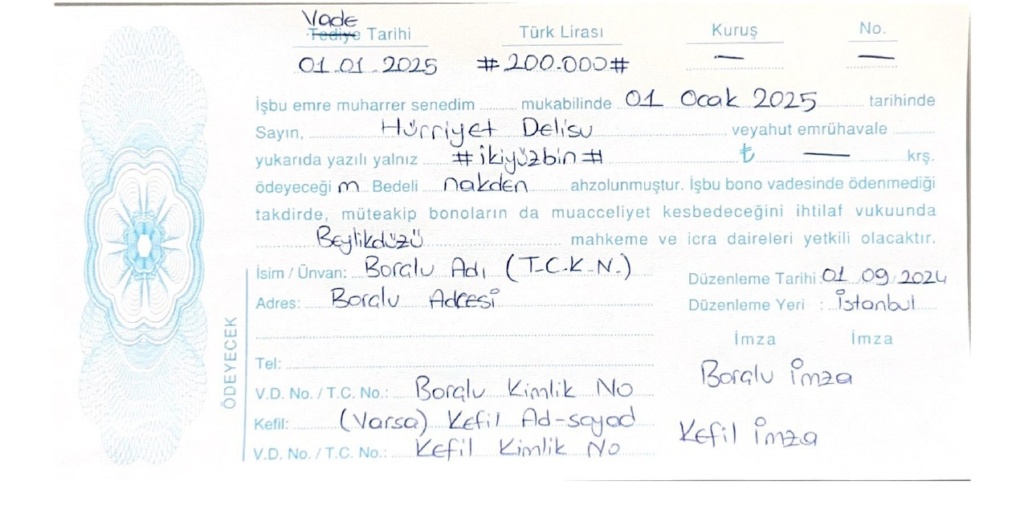 Vade
Tediye Tarihi Türk Lirası Kuruş No.
01.01.2025 #200.000# — —
İşbu emre muharrer senedim mukabilinde 01 Ocak 2025 tarihinde
Sayın, Hürriyet Delisu veyahut emrühavale
yukarıda yazılı yalnız #ikiyüzbin# ₺ — krş.
ödeyeceği m Bedeli nakden ahzolunmuştur. İşbu bono vadesinde ödenmediği
takdirde, müteakip bonoların da muacceliyet kesbedeceğini ihtilaf vukuunda
Beylikdüzü mahkeme ve icra daireleri yetkili olacaktır.
İsim / Ünvan: Borçlu Adı (T.C.K.N.) Düzenleme Tarihi: 01 09 2024
Adres: Borçlu Adresi Düzenleme Yeri : İstanbul
İmza İmza
Tel:
V.D. No. / T.C. No.: Borçlu Kimlik No Borçlu İmza
Kefil: (Varsa) Kefil Ad-soyad Kefil İmza
V.D. No. / T.C. No.: Kefil Kimlik No
ÖDEYECEK